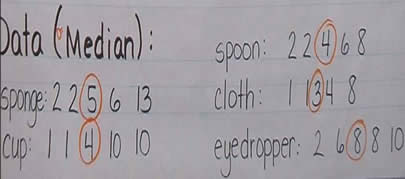 Data (Median):
sponge: 2 2 5 6 13
cup: 1 1 4 10 10
spoon: 2 2 4 6 8
cloth: 1 1 3 4 8
eyedropper: 2 6 8 8 10